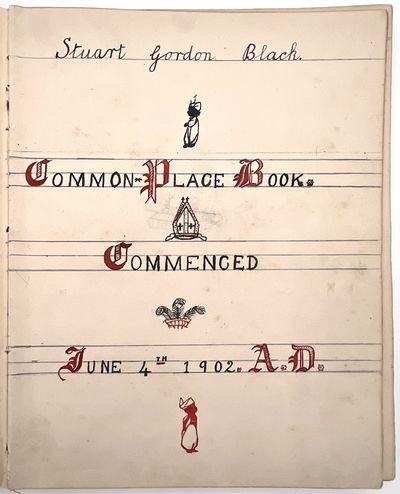 Stuart Gordon Black.
COMMON-PLACE BOOK.
COMMENCED
JUNE 4TH 1902. A.D.